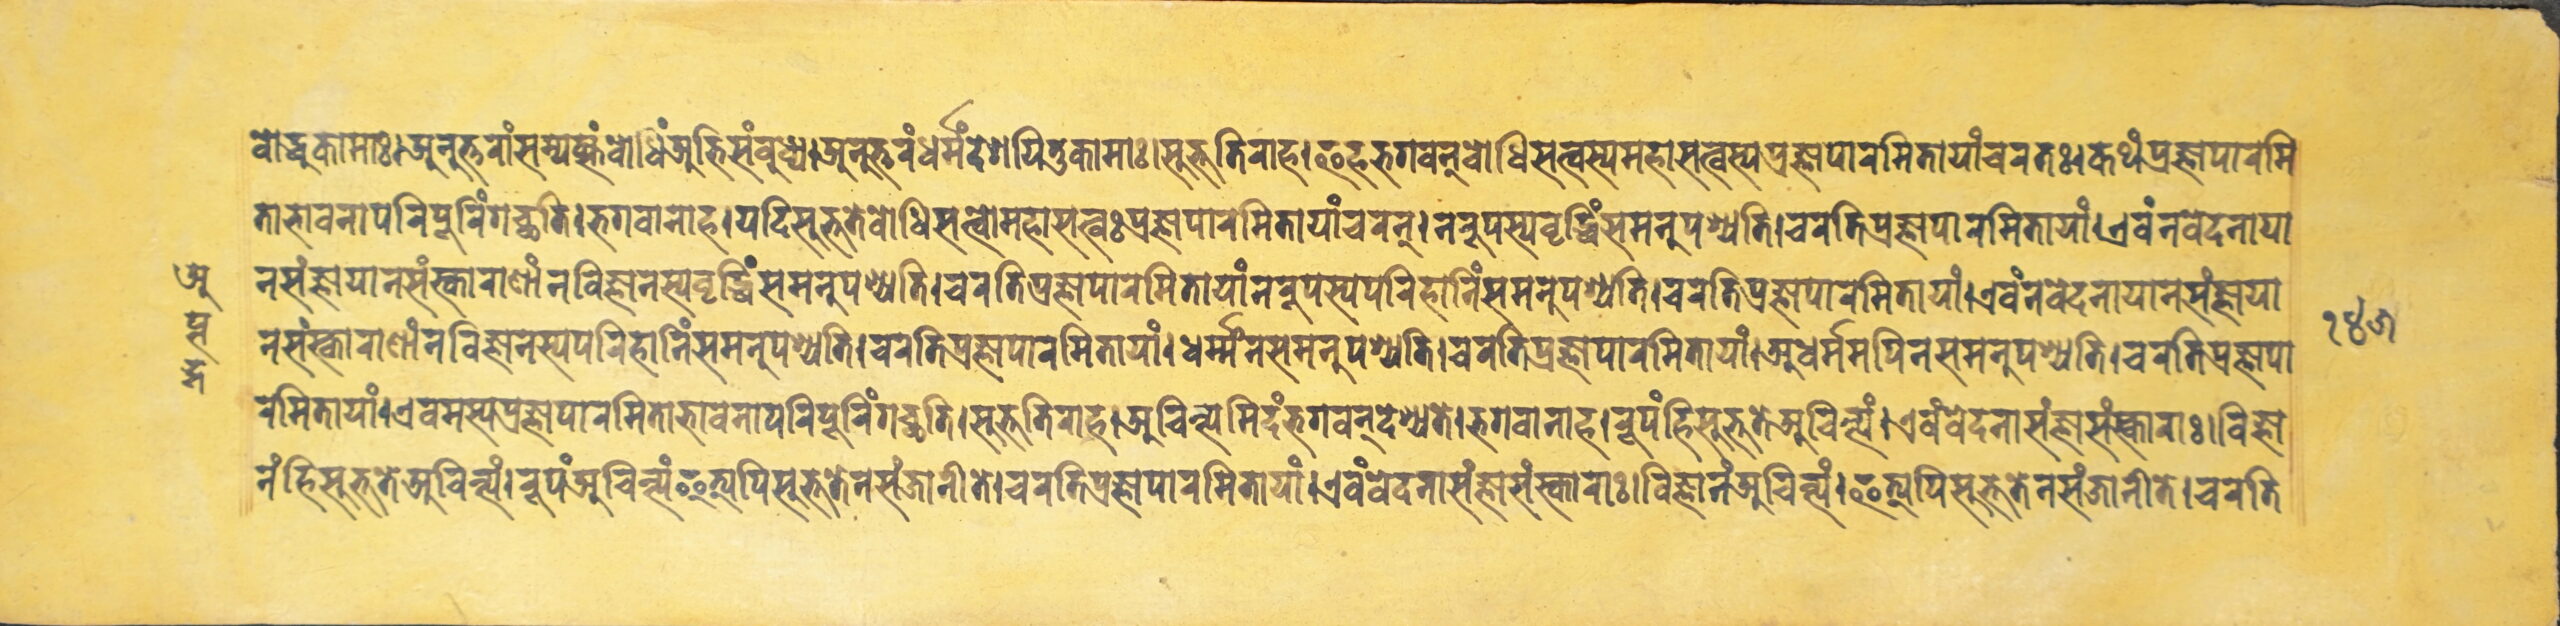 बोद्धुकामाः।अनुत्तरांसम्यक्संबोधिंअभिसंबुध्य।अनुत्तरंधर्मंदेशयितुकामाः।सुभूतिराह।इहभगवन्बोधिसत्त्वस्यमहासत्त्वस्यप्रज्ञापारमितायांचरतः।कथंप्रज्ञापारमि
ताभावनापरिपूरिंगच्छति।भगवानाह।यदिसुभूतेबोधिसत्त्वोमहासत्त्वःप्रज्ञापारमितायांचरन्।नरूपस्यवृद्धिंसमनुपश्यति।चरतिप्रज्ञापारमितायां।एवंनवेदनाया
नसंज्ञायानसंस्काराणांनविज्ञानस्यवृद्धिंसमनुपश्यति।चरतिप्रज्ञापारमितायांनरूपस्यपरिहानिंसमनुपश्यति।चरतिप्रज्ञापारमितायां।एवंनवेदनायानसंज्ञाया
नसंस्काराणांनविज्ञानस्यपरिहानिंसमनुपश्यति।चरतिप्रज्ञापारमितायां।धर्म्मंनसमनुपश्यति।चरतिप्रज्ञापारमितायां।अधर्ममपिनसमनुपश्यति।चरतिप्रज्ञापा
रमितायां।एवमस्यप्रज्ञापारमिताभावनापरिपूरिंगच्छति।सुभूतिराह।अचिन्त्यमिदंभगवन्देश्यते।भगवानाह।रूपंहिसुभूतेअचिन्त्यं।एवंवेदनासंज्ञासंस्काराः।विज्ञा
नंहिसुभूतेअचिन्त्यं।रूपंअचिन्त्यंइत्यपिसुभूतेनसंजानीते।चरतिप्रज्ञापारमितायां।एवंवेदनासंज्ञासंस्काराः।विज्ञानंअचिन्त्यं।इत्यपिसुभूतेनसंजानीते।चरति